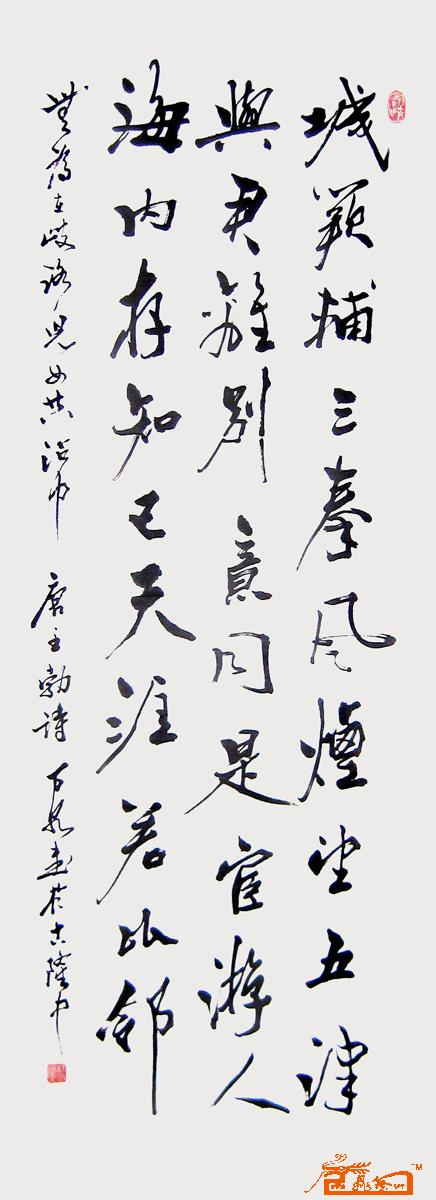 城闕輔三秦風煙望五津
與君離別意同是宦游人
海內存知己天涯若比鄰
無為在歧路兒女共沾巾 唐王勃詩 書於古隆中